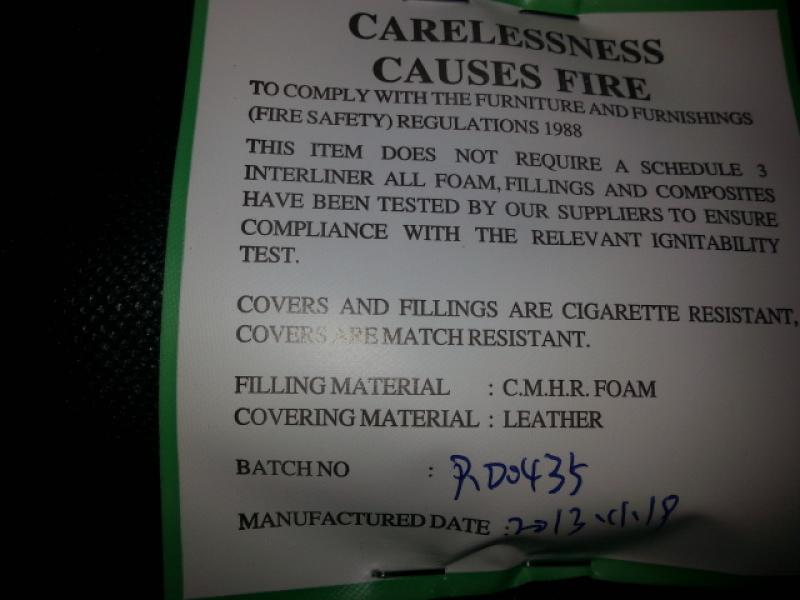 CARELESSNESS
CAUSES FIRE
TO COMPLY WITH THE FURNITURE AND FURNISHINGS
(FIRE SAFETY) REGULATIONS 1988
THIS ITEM DOES NOT REQUIRE A SCHEDULE 3
INTERLINER ALL FOAM, FILLINGS AND COMPOSITES
HAVE BEEN TESTED BY OUR SUPPLIERS TO ENSURE
COMPLIANCE WITH THE RELEVANT IGNITABILITY
TEST.
COVERS AND FILLINGS ARE CIGARETTE RESISTANT,
COVERS ARE MATCH RESISTANT.
FILLING MATERIAL : C.M.H.R. FOAM
COVERING MATERIAL : LEATHER
BATCH NO : RD0435
MANUFACTURED DATE :